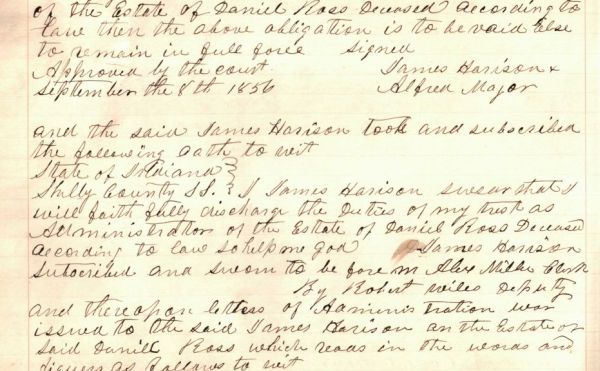 of the Estate of Daniel Ross Deceased according to
law then the above obligation is to be vaid else
to remain in full force Signed
Approved by the court James Harison +
September the 8th 1856 Alfred Major
and the said James Harison took and subscribed
the following oath to wit
State of Indiana }
Shelby County SS. } I James Harison swear that I
will faith fully discharge the Duties of my trust as
Administrator of the Estate of Daniel Ross Deceased
according to law so help me god James Harrison
Subscribed and sworn to be fore m Alex Miller Clerk
By Robert wiles Deputy
and thereopon letters of Adminis tration was
issued to the said James Harison on the Estate of
said Daniel Ross which reads in the words and
figures as follows to wit